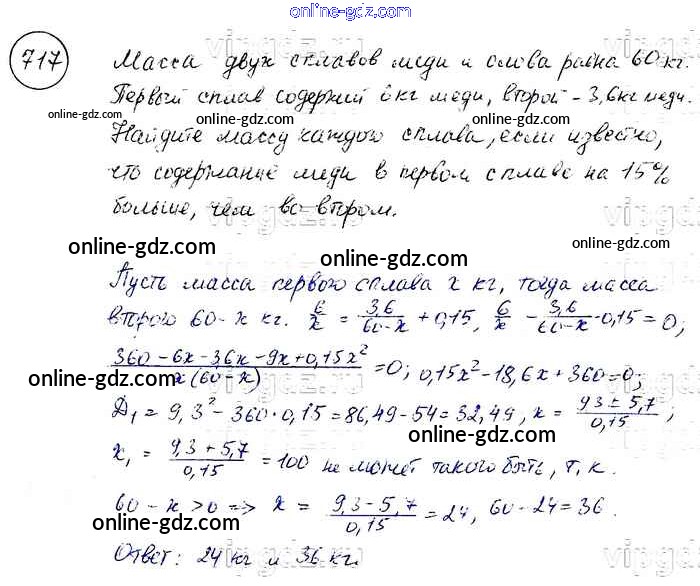 online-gdz.com
717 Масса двух сплавов меди и олова равна 60 кг.
Первый сплав содержит 6 кг меди, второй - 3,6 кг меди.
online-gdz.com online-gdz.com
Найдите массу каждого сплава, если известно,
что содержание меди в первом сплаве на 15%
online-gdz.com
больше, чем во втором.
online-gdz.com online-gdz.com
Пусть масса первого сплава x кг, тогда масса
второго 60-x кг. 6/x = 3,6/(60-x) + 0,15, 6/x - 3,6/(60-x) - 0,15 = 0;
online-gdz.com
(360-6x-3,6x-9x+0,15x²)/(x(60-x)) = 0; 0,15x²-18,6x+360=0;
online-gdz.com online-gdz.com
Д₁ = 9,3² - 360·0,15 = 86,49-54 = 32,49, x = (9,3±5,7)/0,15;
online-gdz.com
x₁ = (9,3+5,7)/0,15 = 100 не может такого быть, т.к.
60-x>0 => x = (9,3-5,7)/0,15 = 24, 60-24=36.
online-gdz.com online-gdz.com
Ответ: 24 кг и 36 кг.